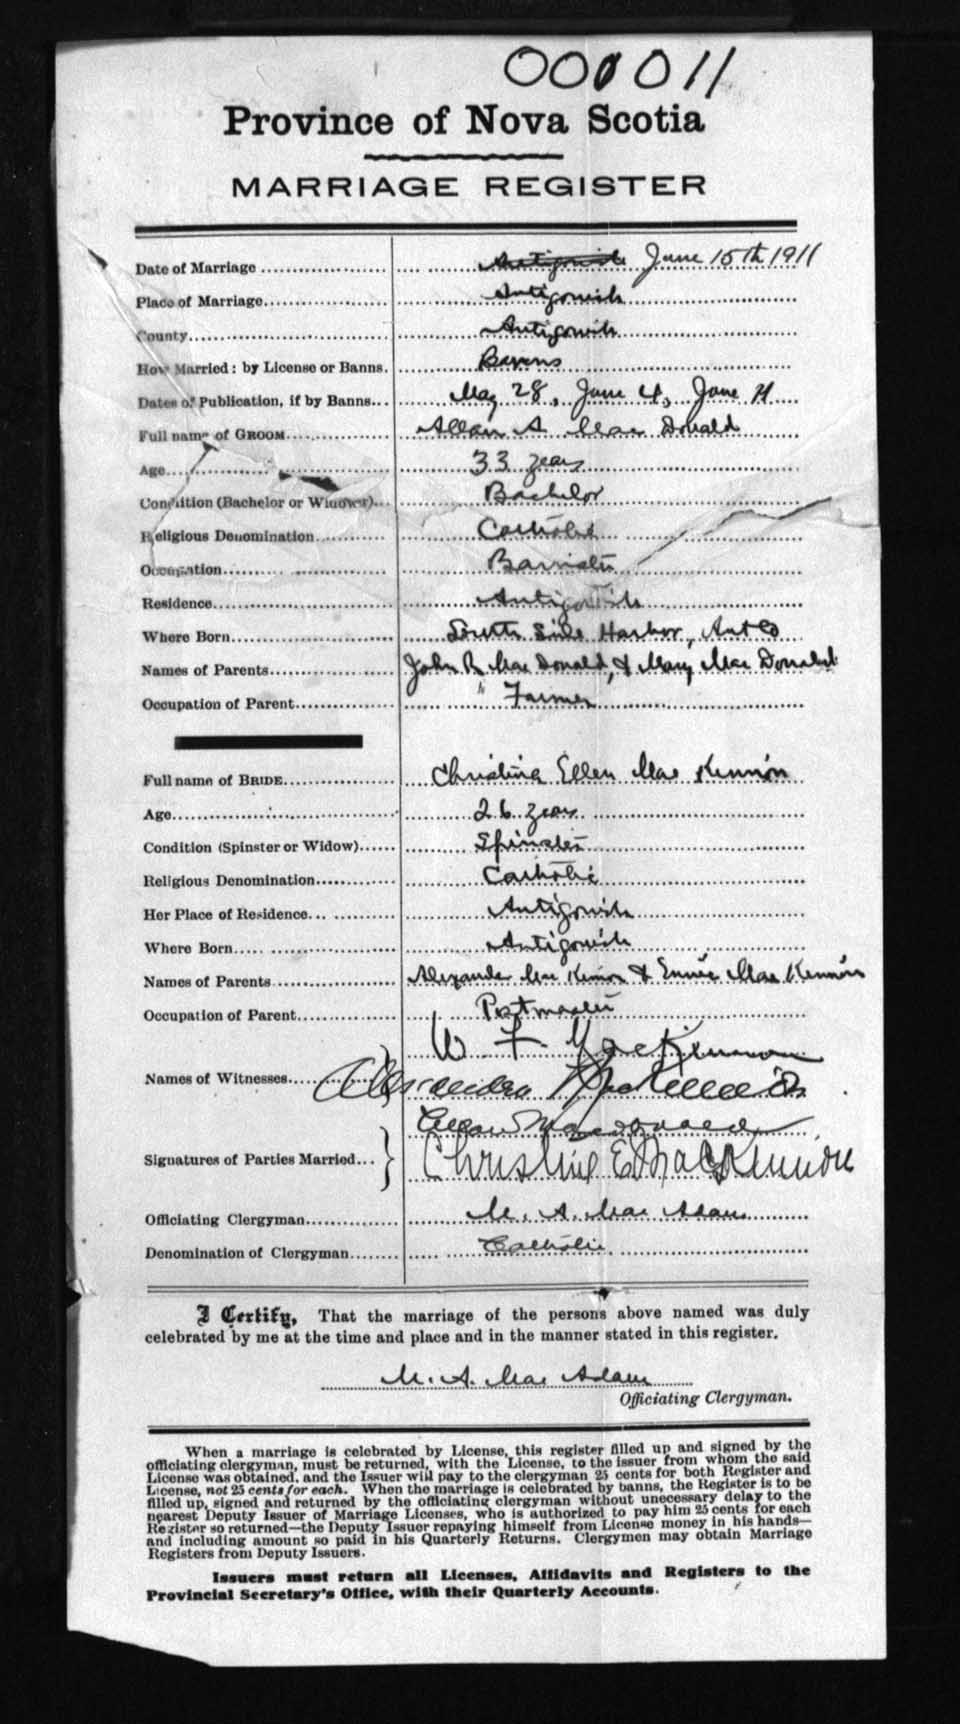 000011
Province of Nova Scotia
MARRIAGE REGISTER
Date of Marriage Antigonish June 15th 1911
Place of Marriage Antigonish
County Antigonish
How Married: by License or Banns. Banns
Dates of Publication, if by Banns May 28, June 4, June 11
Full name of GROOM Allan A Mac Donald
Age 33 years
Condition (Bachelor or Widower) Bachelor
Religious Denomination Catholic
Occupation Barrister
Residence Antigonish
Where Born South Side Harbor, Ant Co
Names of Parents John R Mac Donald, & Mary Mac Donald
Occupation of Parent " Farmer
Full name of BRIDE Christina Ellen Mac Kinnon
Age 26 years
Condition (Spinster or Widow) Spinster
Religious Denomination Catholic
Her Place of Residence Antigonish
Where Born Antigonish
Names of Parents Alexander Mac Kinnon & Mac Kinnon
Occupation of Parent Postmaster
W F MacKinnon
Names of Witnesses
Allan Macdonald
Signatures of Parties Married Christine E. MacKinnon
Officiating Clergyman M. A. Mac Adam
Denomination of Clergyman Catholic
I Certify, That the marriage of the persons above named was duly
celebrated by me at the time and place and in the manner stated in this register.
M. A. Mac Adam
Officiating Clergyman.
When a marriage is celebrated by License, this register filled up and signed by the
officiating clergyman, must be returned, with the License, to the issuer from whom the said
License was obtained, and the Issuer will pay to the clergyman 25 cents for both Register and
License, not 25 cents for each. When the marriage is celebrated by banns, the Register is to be
filled up, signed and returned by the officiating clergyman without unnecessary delay to the
nearest Deputy Issuer of Marriage Licenses, who is authorized to pay him 25 cents for each
Register so returned—the Deputy Issuer repaying himself from License money in his hands—
and including amount so paid in his Quarterly Returns. Clergymen may obtain Marriage
Registers from Deputy Issuers.
Issuers must return all Licenses, Affidavits and Registers to the
Provincial Secretary's Office, with their Quarterly Accounts.